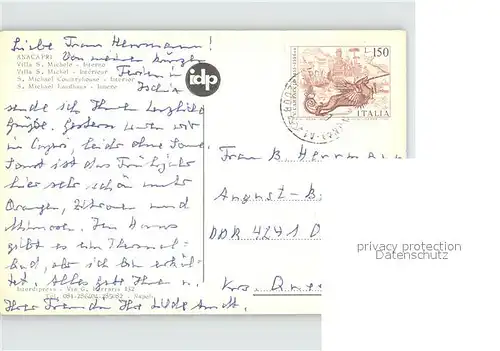 Liebe Frau Herrmann!
ANACAPRI
Villa S. Michele - Interno
Villa S. Michel - Intérieur
S. Michael Countryhouse - Interior
S. Michael Landhaus - Innere
Von meinen kurzen
Ferien in
Ischia
idp
L.150
ITALIA
sende ich Ihnen herzliche
Grüße. Gestern waren wir
in Capri, leider ohne Sonne.
Sonst ist das Frühjahr
hier sehr schön mit
Orangen, Zitronen und
Mimosen. Im Haus
gibt es ein Thermal-
bad, aber ich bin erkäl-
tet. Alles gute Ihnen u.
Ihrer Frau
Frau B. Herrmann
August-B
DDR 4271 D
Krs.
privacy protection
Datenschutz